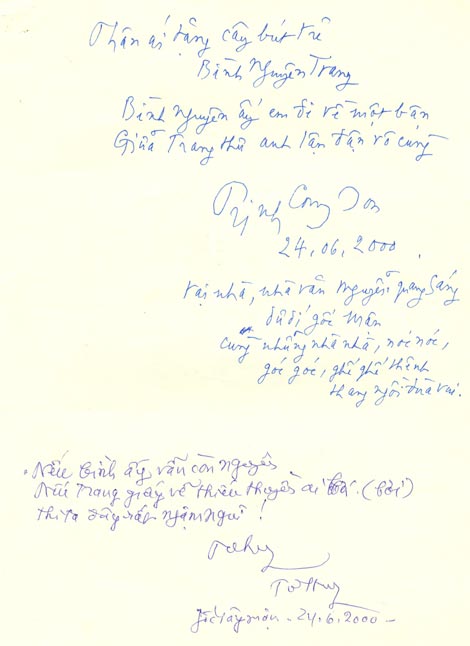 Thân ái tặng cây bút trẻ
Bình Nguyên Trang
Bình nguyên ấy em đi về một bận
Giữa Trang thư anh lận đận vô cùng
Trịnh Cong Son
24.06.2000.
tại nhà, nhà văn Nguyễn quang Sáng
dưới gốc mận
cùng những nhà nhà, nóc nóc,
góc góc, ghế ghế thênh
thang ngồi đưa vai.
Nếu bình ấy vẫn còn nguyên
Nếu Trang giấy vẽ thiền thuyền ai (bơi)
thì ta đây ngậm ngùi!
Từ Huy
Từ Huy
gốc cây mận - 24.6.2000 -